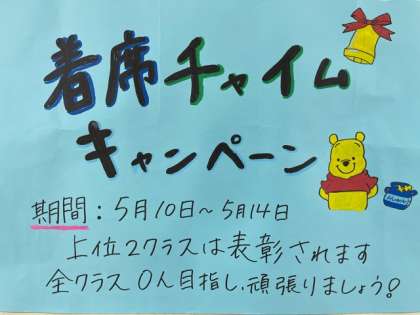 着席チャイム
キャンペーン
期間：5月10日～5月14日
上位2クラスは表彰されます
全クラス0人目指し、頑張りましょう!